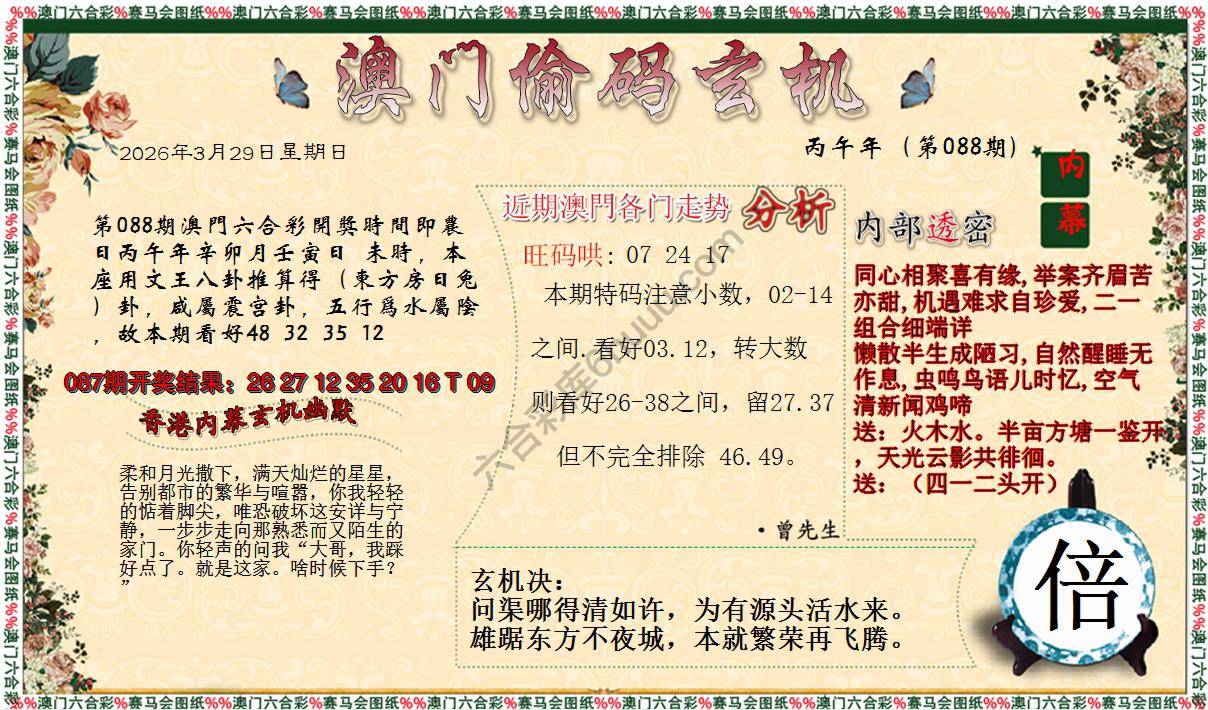 %%澳门六合彩%赛马会图纸%%澳门六合彩%赛马会图纸%%澳门六合彩%赛马会图纸%%澳门六合彩%赛马会图纸%%澳门六合彩%赛马会图纸%%澳门六合彩%赛马会图纸%%
澳门偷码玄机
2026年3月29日星期日
丙午年（第088期）
内幕
第088期澳門六合彩開獎時間即農
日丙午年辛卯月壬寅日 未時，本
座用文王八卦推算得（東方房日兔
）卦，咸屬震宫卦，五行爲水屬陰
，故本期看好48 32 35 12
087期开奖结果：26 27 12 35 20 16 T 09
香港内幕玄机幽默
柔和月光撒下，满天灿烂的星星，
告别都市的繁华与喧嚣，你我轻轻
的惦着脚尖，唯恐破坏这安详与宁
静，一步步走向那熟悉而又陌生的
家门。你轻声的问我“大哥，我踩
好点了。就是这家。啥时候下手？
”
近期澳門各门走势 分析
旺码哄: 07 24 17
本期特码注意小数，02-14
之间.看好03.12，转大数
则看好26-38之间，留27.37
但不完全排除 46.49。
·曾先生
内部透密
同心相聚喜有缘,举案齐眉苦
亦甜,机遇难求自珍爱,二一
组合细端详
懒散半生成陋习,自然醒睡无
作息,虫鸣鸟语儿时忆,空气
清新闻鸡啼
送：火木水。半亩方塘一鉴开
，天光云影共徘徊。
送：（四一二头开）
玄机决：
问渠哪得清如许，为有源头活水来。
雄踞东方不夜城，本就繁荣再飞腾。
倍
%%澳门六合彩%赛马会图纸%%澳门六合彩%赛马会图纸%%澳门六合彩%赛马会图纸%%澳门六合彩%赛马会图纸%%澳门六合彩%赛马会图纸%%澳门六合彩%赛马会图纸%%